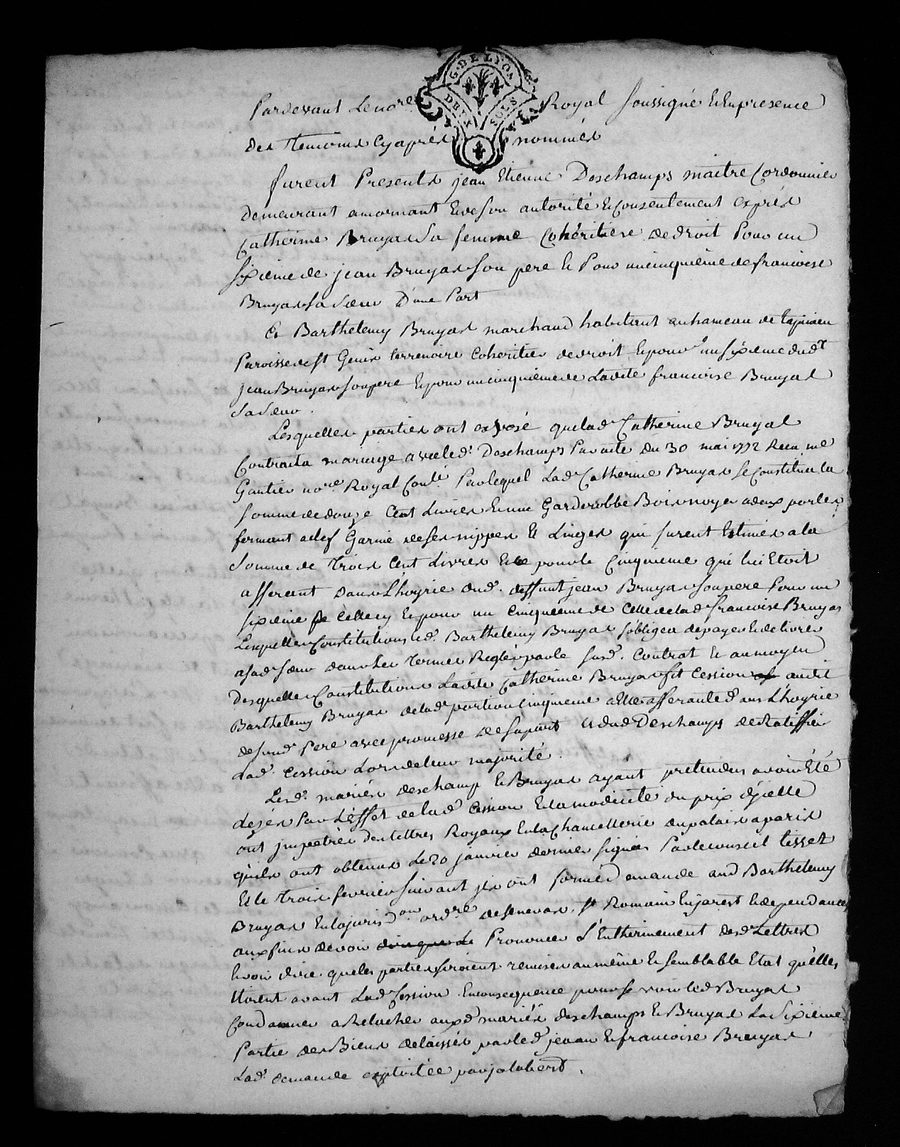 G. DE LYON
DEUX SOLS
Pardevant Le no.re Royal soussigné & En presence
des Temoins Cy apres nommés
furent Presents jean Etienne Deschamps maitre Cordonnier
demeurant a mornant & de son autorité & Consentement exprès
Catherine Bruyas sa femme Cohéritiere de droit Pour un
sixieme de jean Bruyas son pere & Pour un cinquieme de francoise
Bruyas sa sœur D'une Part
Et Barthelemy Bruyas marchand habitant au hameau de
Paroisse de St Genis terrenoire Coheritier de droit & pour un sixieme dud.t
jean Bruyas son pere & pour un cinquieme de Ladite francoise Bruyas
sa sœur.
Lesquelles parties ont exposé que lad.e Catherine Bruyas
Contracta mariage avec led.t Deschamps Par acte du 30 mai 1772 Recu me
Gautier no.re Royal Par lequel Lad.e Catherine Bruyas se Constitua la
somme de douze Cent Livres & une Garderobbe Bois noyer a deux portes
fermant a clef Garnie de ses nippes & Linges qui furent Estimés a la
somme de Trois Cent Livres & ce pour le Cinquieme qui lui Etoit
afferent dans L'hoyrie dud. deffunt jean Bruyas son pere Pour un
sixieme de Celle cy & pour un Cinquieme de Celle de lad.e francoise Bruyas
Lesquelles Constitutions led.t Barthelemy Bruyas s'obligea de payer & de livrer
a sad. sœur dans les Termes Reglés par le susd.t Contrat & au moyen
desquelles Constitutions Ladite Catherine Bruyas fit cession audit
Barthelemy Bruyas de lad.e portion Cinquieme a Elle afferante dans L'hoyrie
de sond. Pere avec promesse de sa part & dud. Deschamps de Ratiffier
Lad.e Cession Lors de leur majorité.
Lesd.s mariés deschamp & Bruyas ayant pretendus avoir Eté
Lesés Par L'effet de lad.e Cession & La modicité du prix d'icelle
ont impetrés des Lettres Royaux En la Chancellerie du palais a paris
qu'ils ont obtenus Le 20 janvier dernier signés Par le conseil
& Le Trois fevrier suivant ils ont formé demande aud. Barthelemy
Bruyas En la juris.on ord.re de St Romain En jarest & dependances
aux fins de voir Prononcer L'Entherinement desd. Lettres
& voir dire que les parties seroient remises au même & semblable Etat qu'elles
Etoient avant Lad.e Cession En consequence pour se voir led. Bruyas
Condamner a Relacher auxd. mariés deschamps & Bruyas La sixieme
Partie des Biens delaissés par led. jean & francoise Bruyas
Lad.e demande exploitée par jalabert.